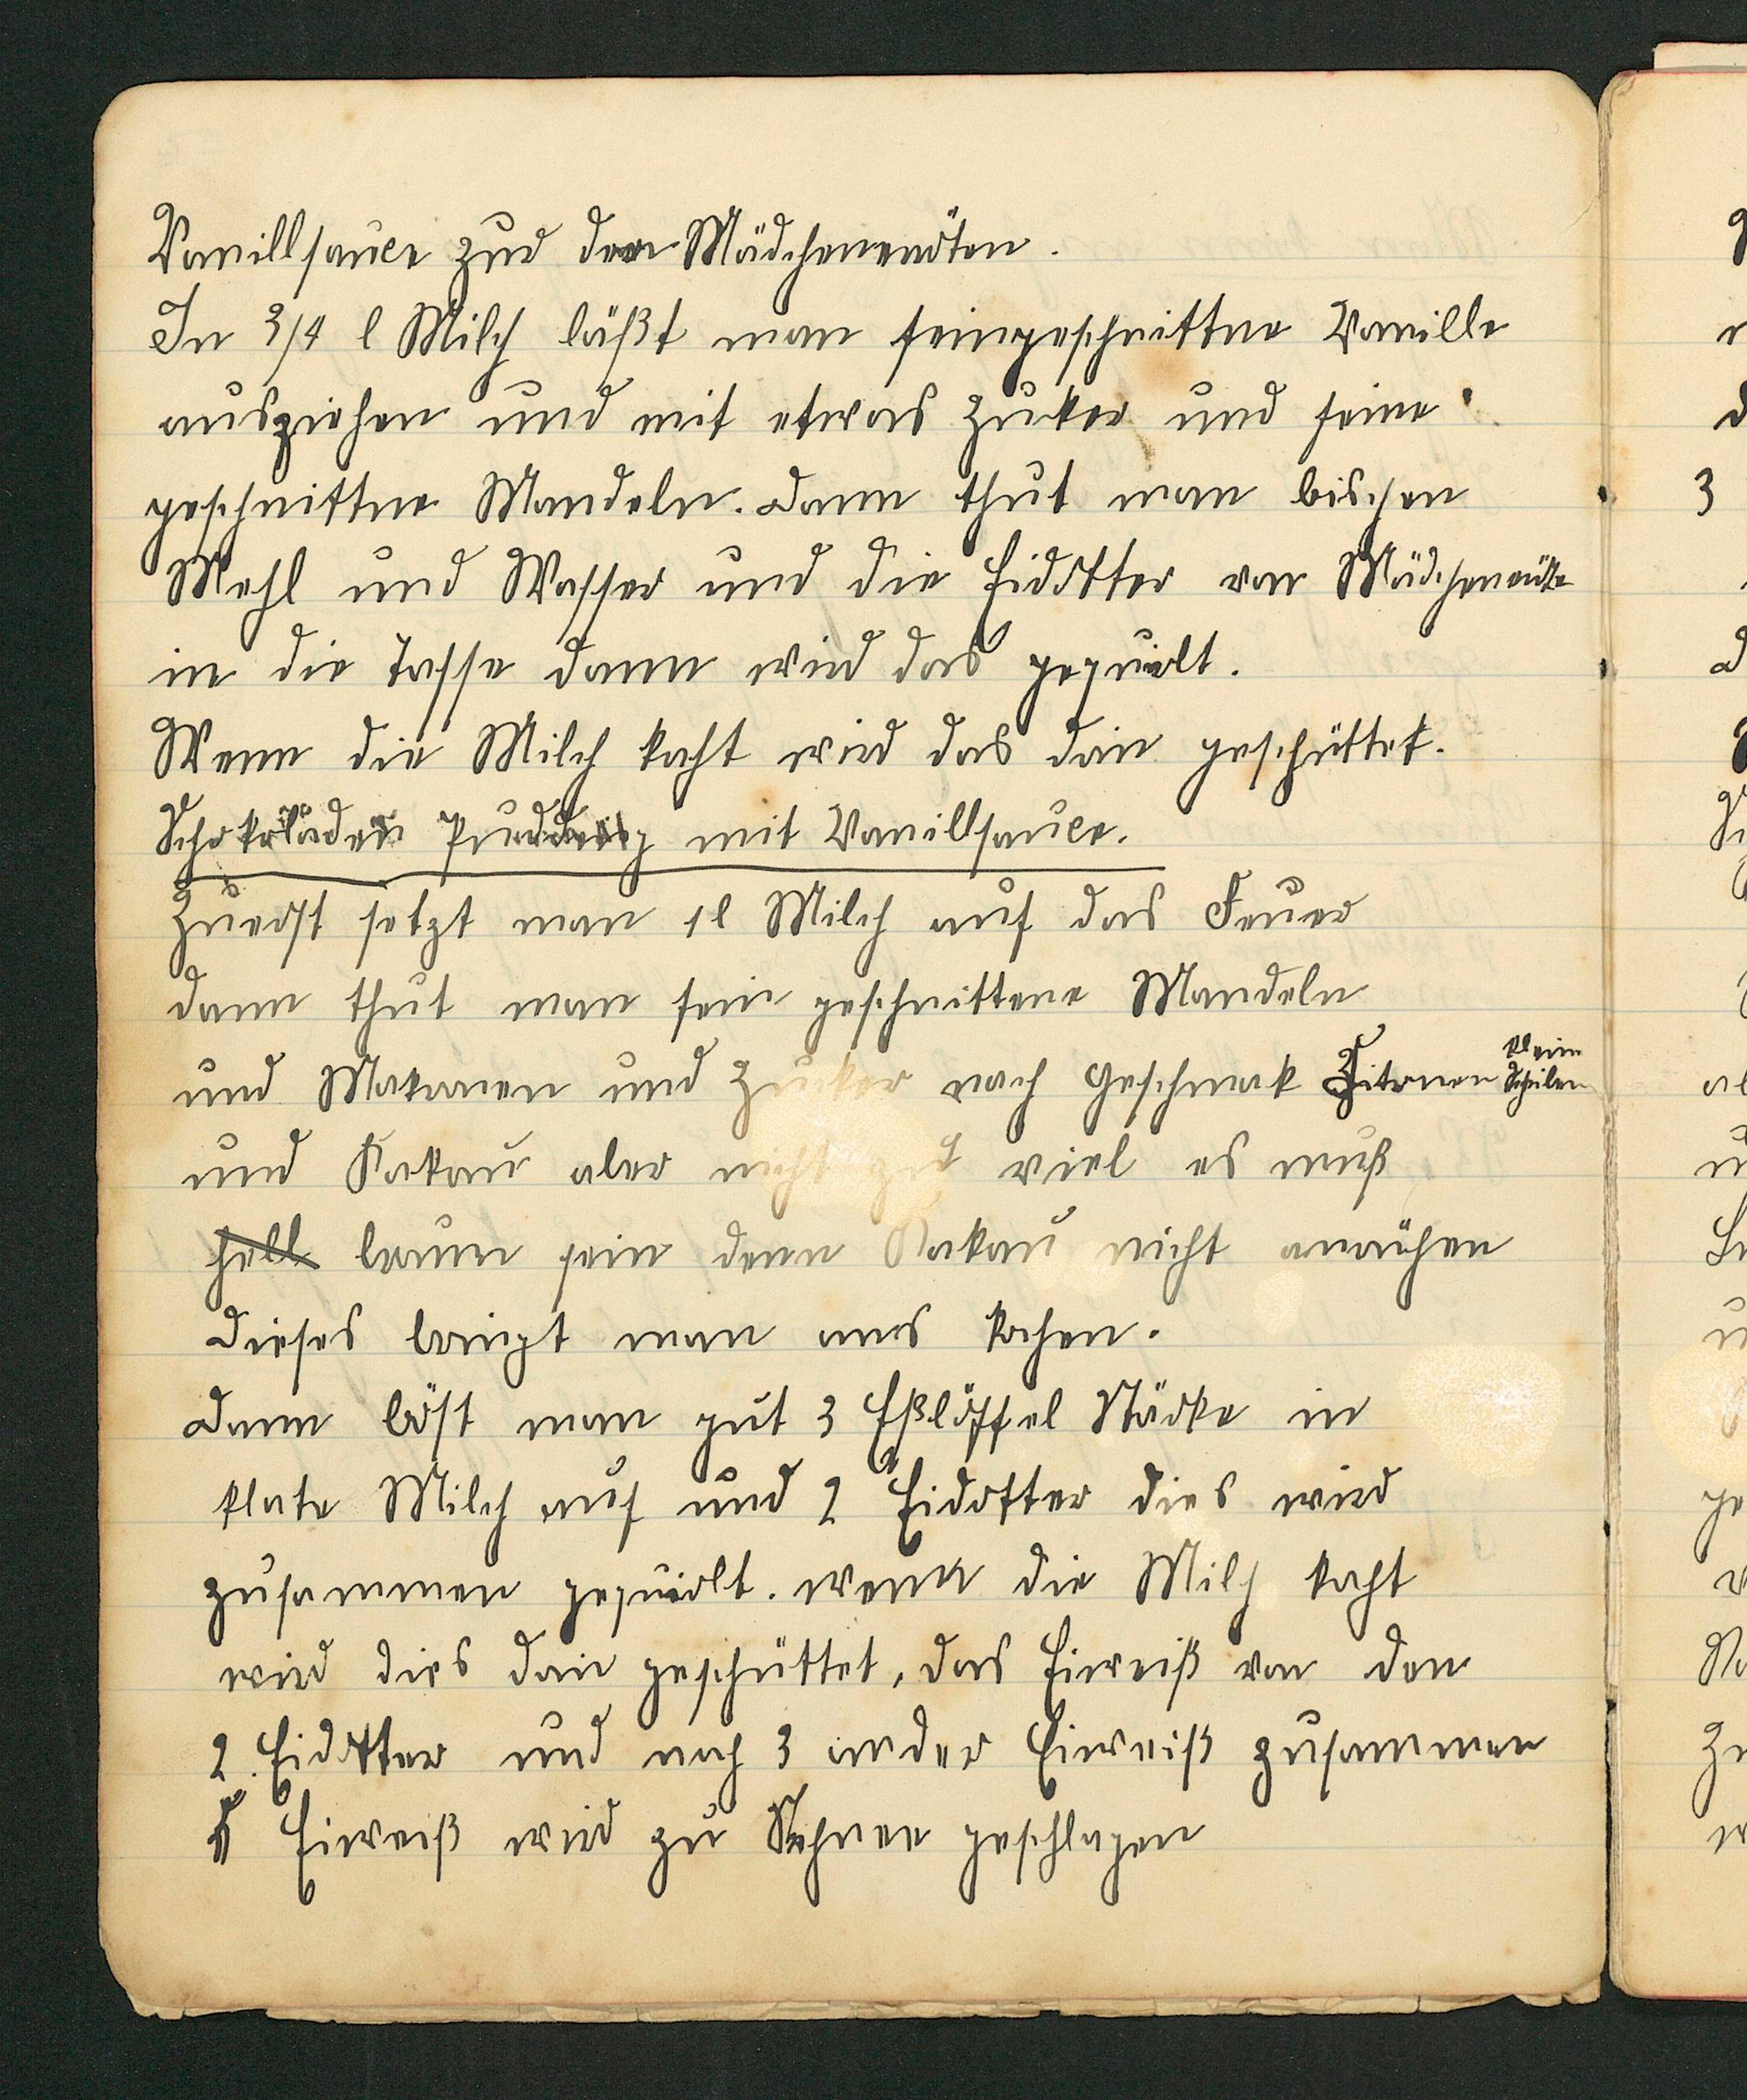 Vanillsauce zur den Mädchenerröten.
In 3/4 l Milch läßt man feingeschnittne Vanille
ausziehen und mit etwas Zuker und feine
geschnittne Mandeln. dann thut man bischen
Mehl und Wasser und die Eidotter von Mädchenerröte
in die Tasse dann wird das gequirlt.
Wenn die Milch kocht wird das drin geschüttet.
Schokoladen Pudding mit Vanillsauce.
Zuerst setzt man 1 l Milch auf das Feuer
dann thut man fein geschnittene Mandeln
und Makronen und Zuker nach Geschmak Zitronen klein Schalen
und Kakau aber nicht zu viel es muß
hell braun sein denn Kakau nicht anrühren
dieses bringt man ans kochen.
dann löst man gut 3 Eßlöffel Stärke in
klate Milch auf und 2 Eidotter dies wird
zusammen gequirlt. wenn die Milch kocht
wird dies drin geschüttet, das Eiweiß von den
2. Eidotter und noch 3 ander Eiweiß zusammen
5 Eiweiß wird zu Schnee geschlagen